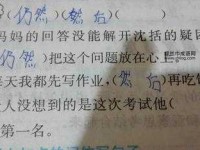 (仍然)(然后)( )
妈妈的回答没能解开沈括的疑团
仍然)把这个问题放在心
天我都先写作业,(然后)再吃
人没想到的是这次考试他(
第一名。